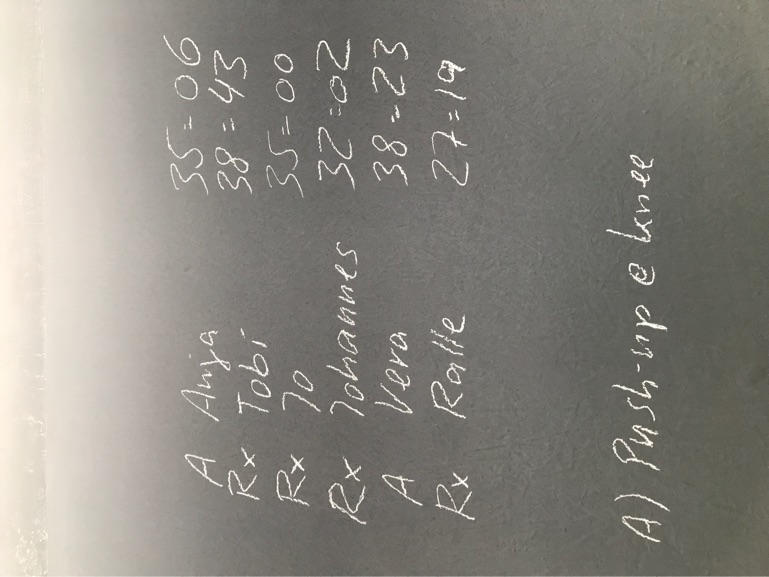 A Anja 35=06
Rx Tobi 38=43
Rx Jo 35=00
Rx Johannes 32=02
A Vera 38=23
Rx Ralle 27=19
A) Push-up @ knee